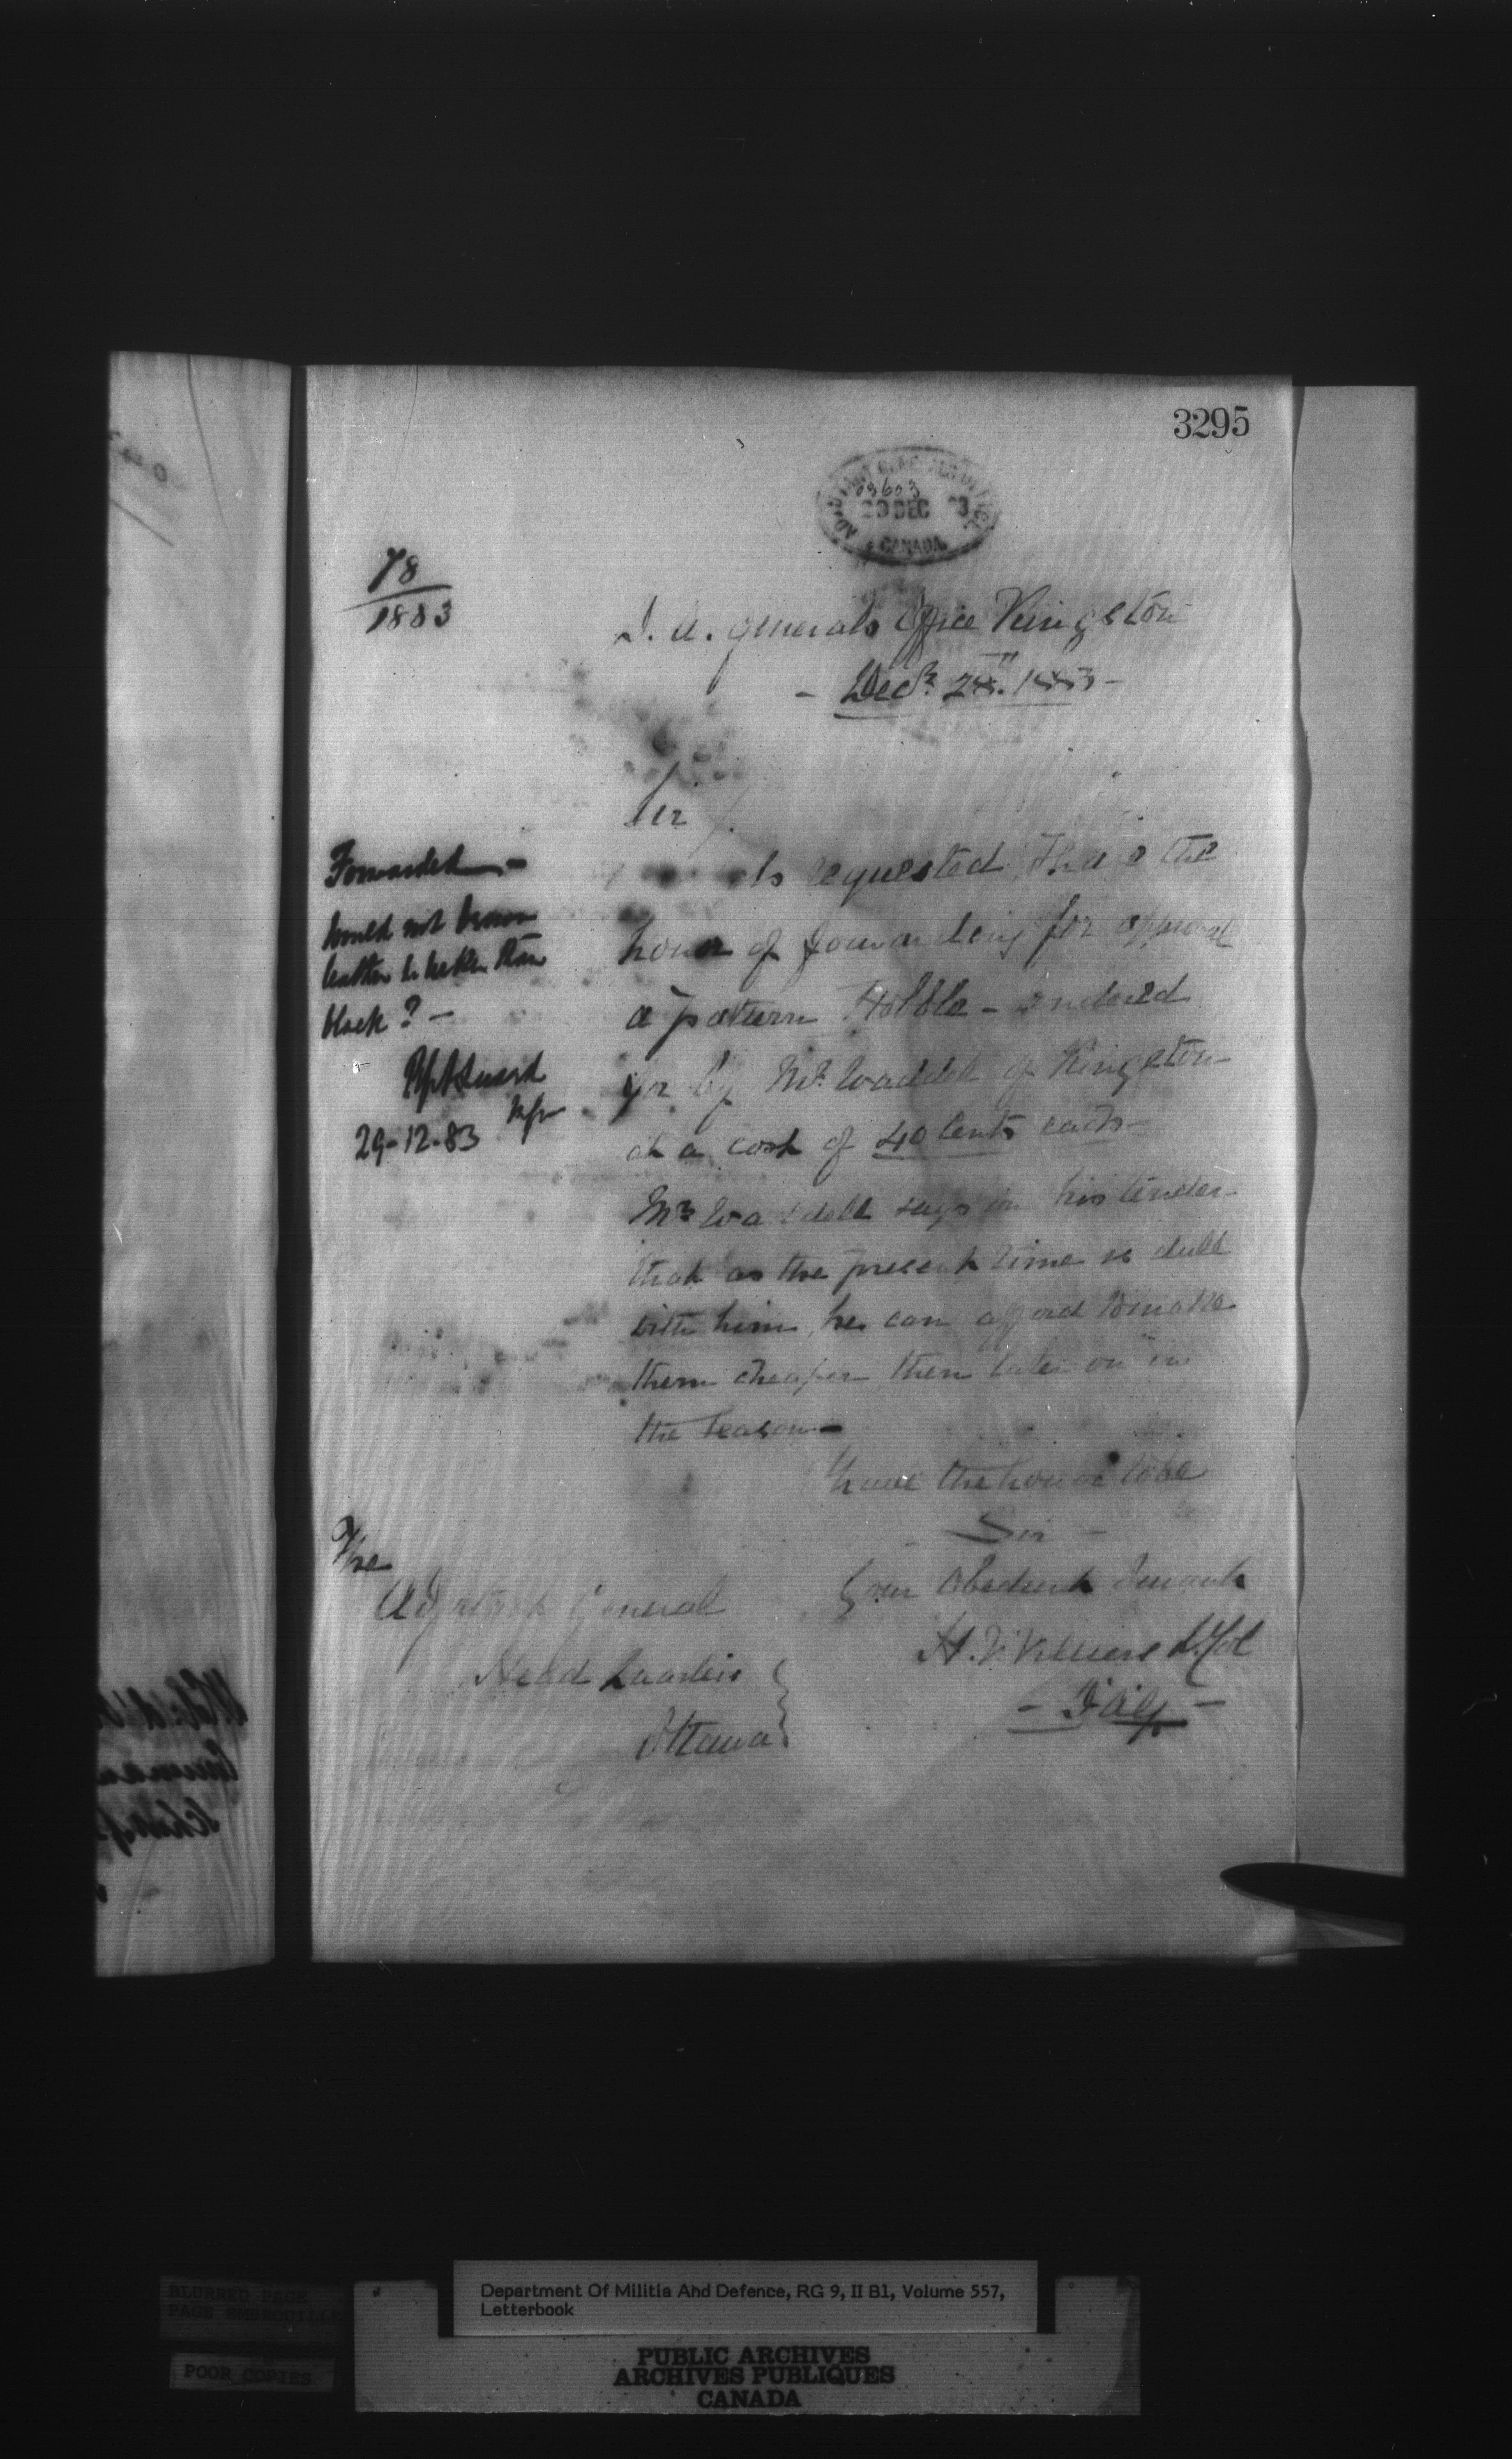 3295
ADJUTANT GENERALS OFFICE
03603
29 DEC 83
CANADA
78
1883
D. A. Generals Office Kingston
- Decr. 28th. 1883 -
Sir /.
As requested I have the
honor of forwarding for approval
a pattern Hobble -
for by Mr. Waddell of Kingston
at a cost of 40 Cents each -
Mr Waddell says in his tender
that as the present time is dull
with him, he can afford to make
them cheaper then later on in
the season -
I have the honor to be
Sir -
Your Obedient Servant
H. V. Villiers Lt. Col
- DAG -
The
Adjutant General
Head Quarters
Ottawa
Forwarded -
Would not brown
leather be better than
black? -
29-12-83
BLURRED PAGE
PAGE EMBROUILLEE
POOR COPIES
Department Of Militia And Defence, RG 9, II B1, Volume 557,
Letterbook
PUBLIC ARCHIVES
ARCHIVES PUBLIQUES
CANADA